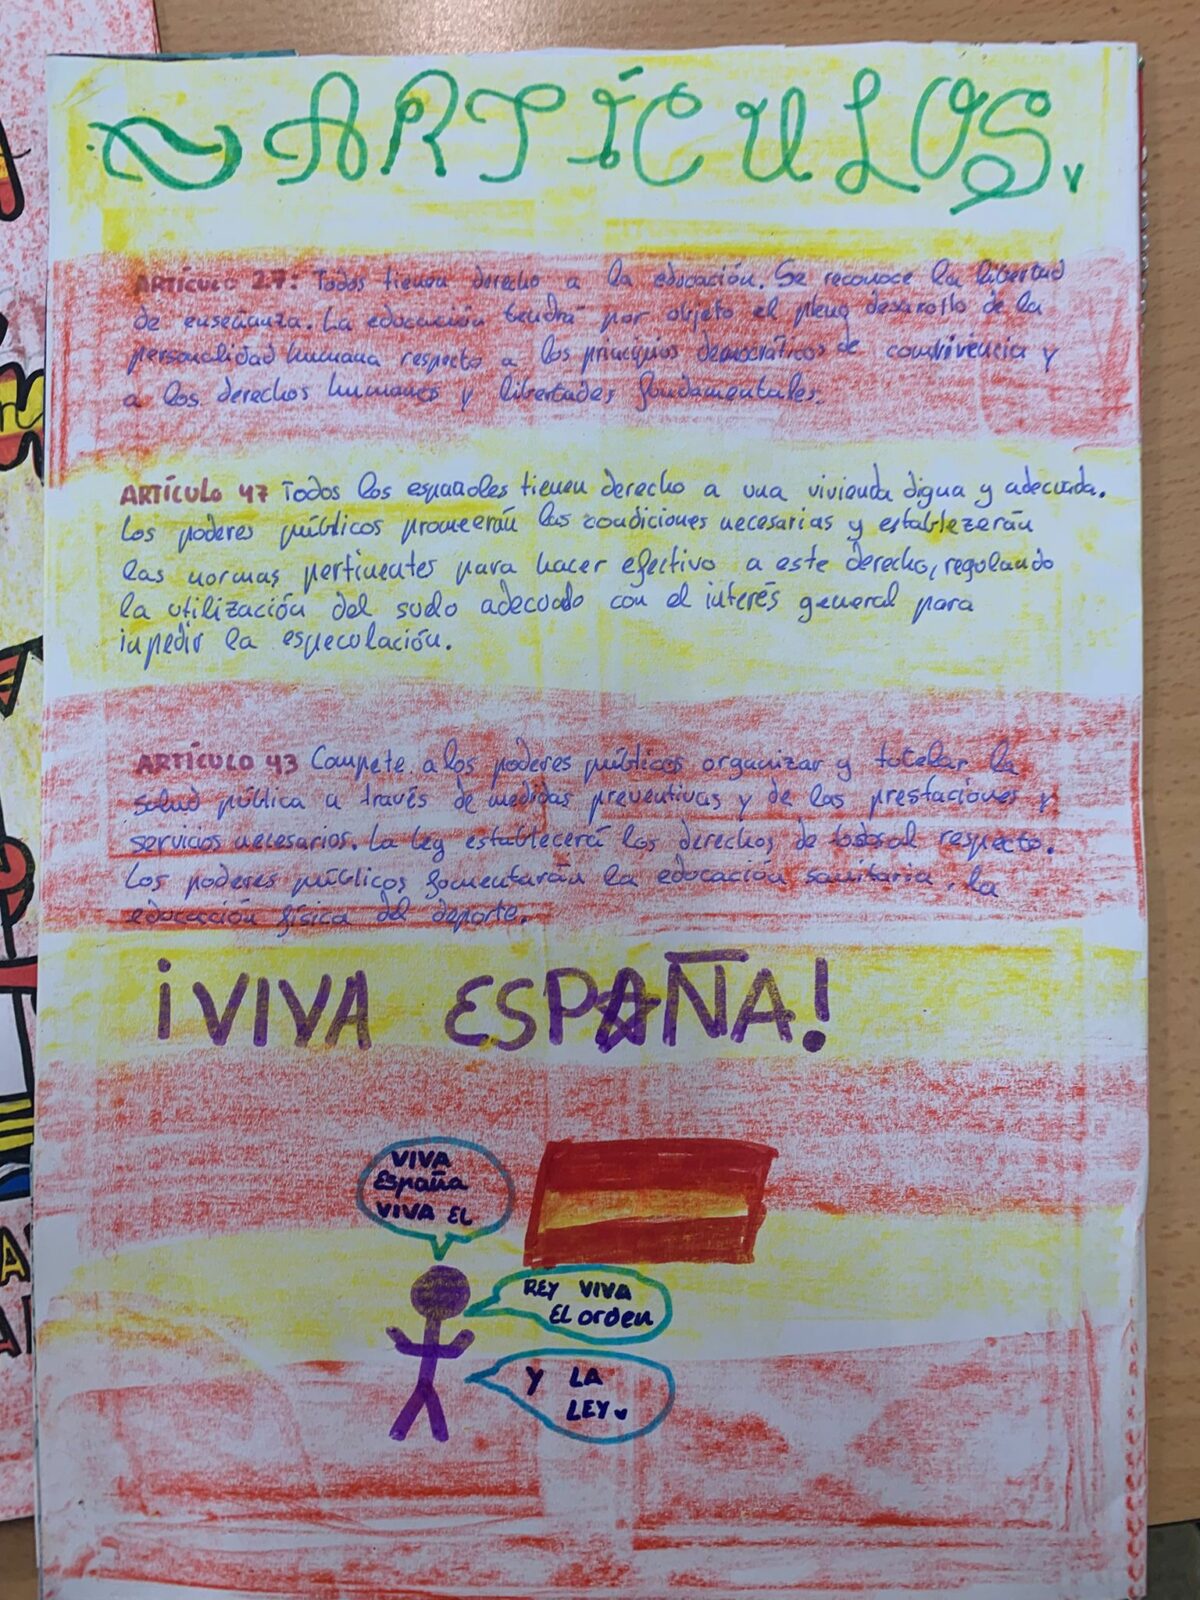 ARTÍCULOS
ARTÍCULO 27: Todos tienen derecho a la educación. Se reconoce la libertad
de enseñanza. La educación tendrá por objeto el pleno desarollo de la
personalidad humana respecto a los principios democráticos de convivencia y
a los derechos humanos y libertades fundamentales.
ARTÍCULO 47 Todos los españoles tienen derecho a una vivienda digna y adecuada.
Los poderes públicos promeerán las condiciones necesarias y establezerán
las normas pertinentes para hacer efectivo a este derecho, regulando
la utilización del suelo adecuado con el interés general para
inpedir la especulación.
ARTÍCULO 43 Compete a los poderes públicos organizar y tutelar la
salud pública a través de medidas preventivas y de las prestaciones y
servicios necesarios. La ley establecerá los derechos de todos al respecto.
Los poderes públicos fomentarán la educación sanitaria, la
educación física del deporte.
¡VIVA ESPAÑA!
VIVA
España
VIVA EL
REY VIVA
EL orden
Y LA
LEY